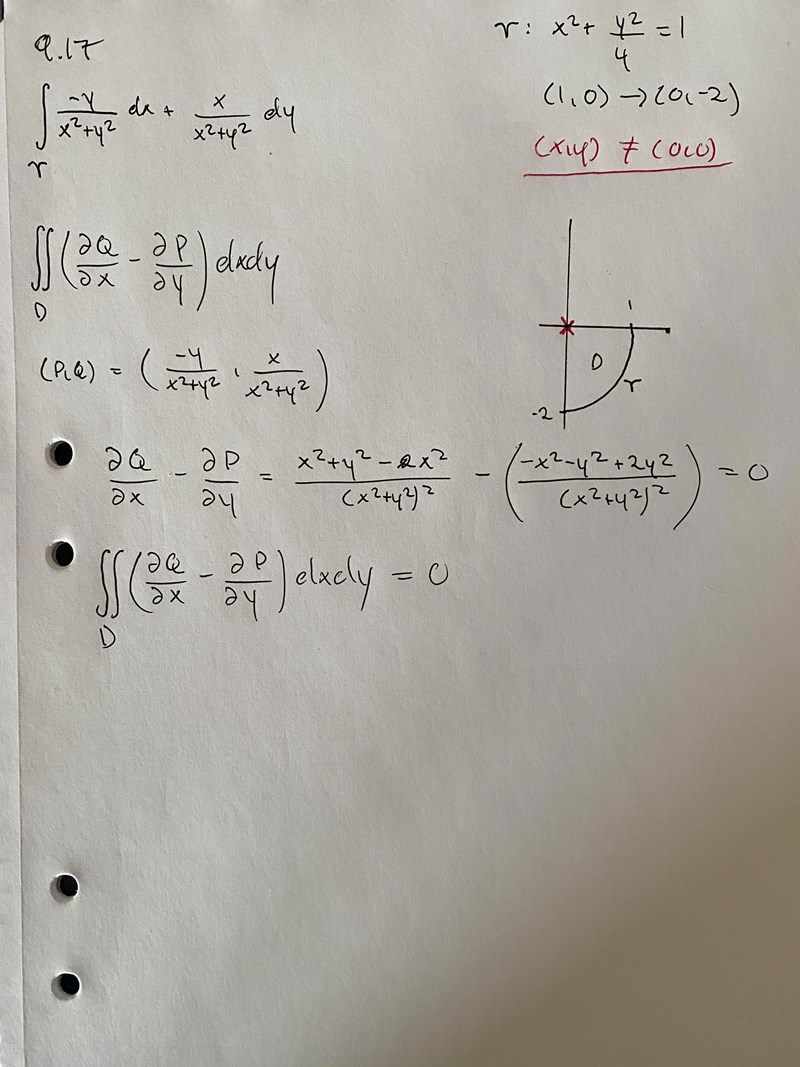 9.17
∫_γ -y/(x²+y²) dx + x/(x²+y²) dy
γ: x² + y²/4 = 1
(1,0) → (0,-2)
(x,y) ≠ (0,0)
∬_D (∂Q/∂x - ∂P/∂y) dxdy
1
D
γ
-2
(P,Q) = (-y/(x²+y²), x/(x²+y²))
∂Q/∂x - ∂P/∂y = (x²+y²-2x²)/(x²+y²)² - ((-x²-y²+2y²)/(x²+y²)²) = 0
∬_D (∂Q/∂x - ∂P/∂y) dxdy = 0